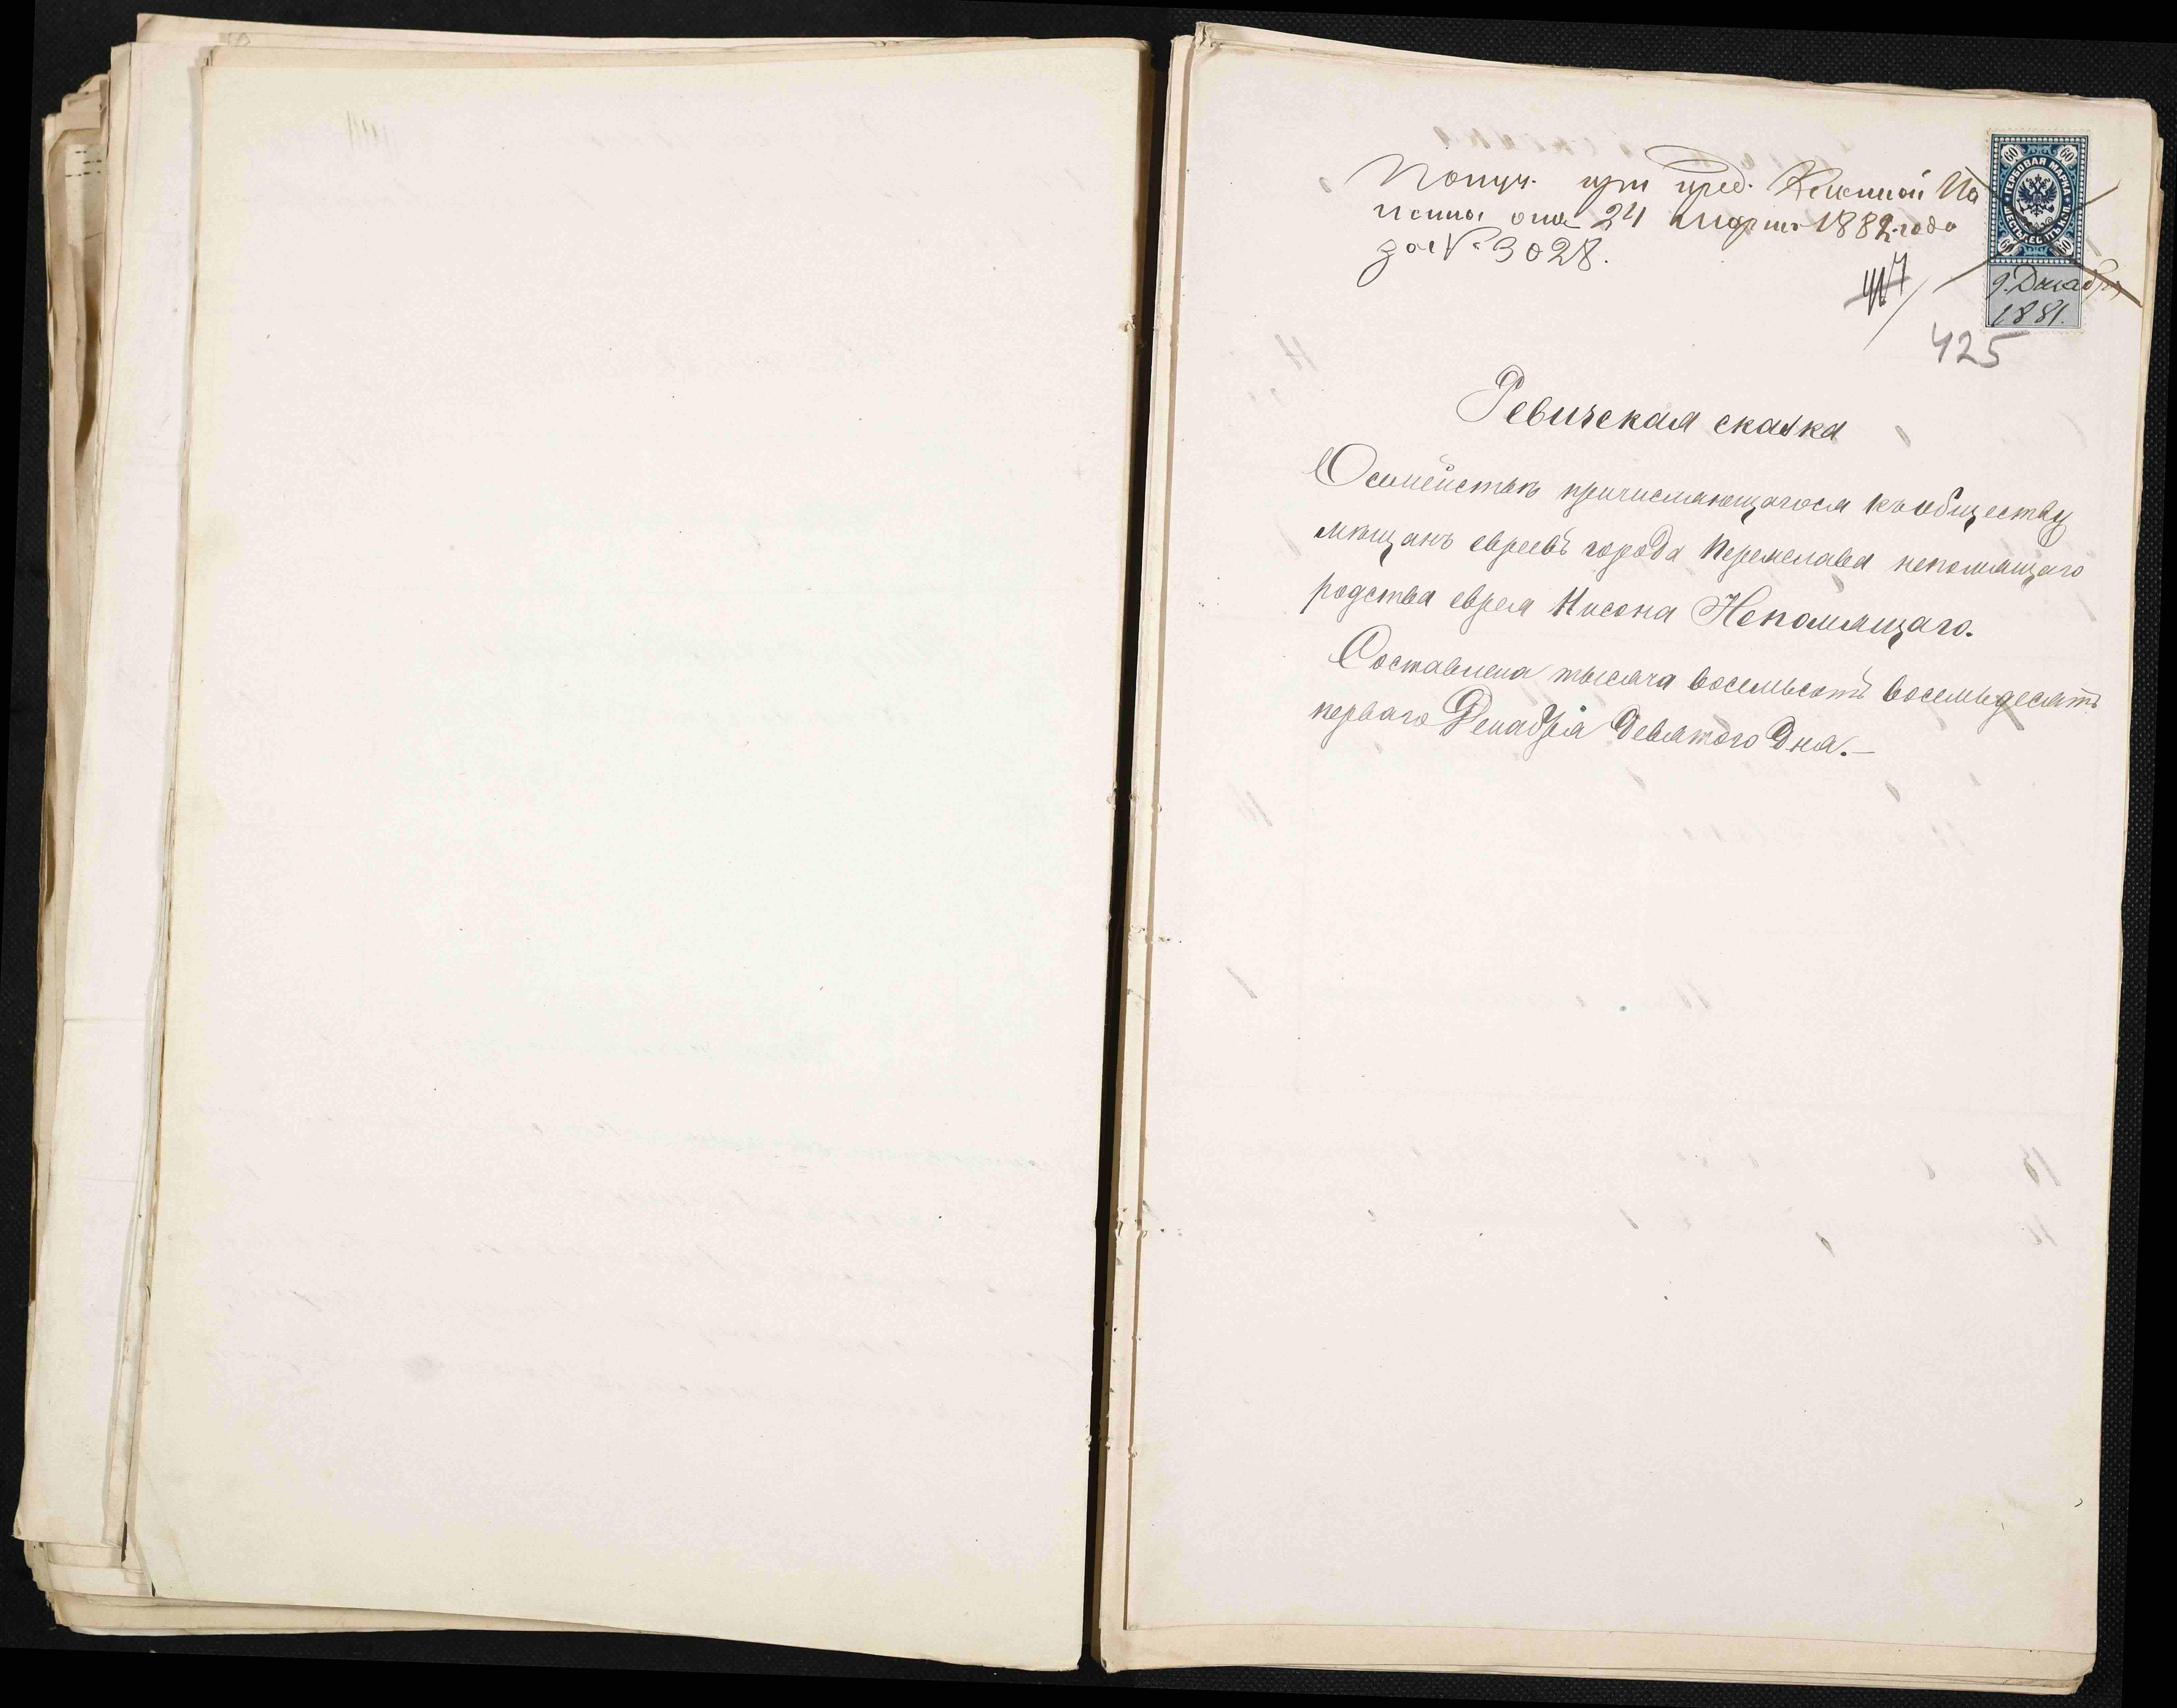 Получ. при пред. Казенной Па
латы отъ 24 Марта 1882 года
за № 3028.
ГЕРБОВАЯ МАРКА
ШЕСТЬДЕСЯТЪ К-П.
60 60
60 60
9. Декабр
1881.
425
Ревизская сказка
О семействѣ причисляющагося къ обществу
мѣщанъ евреевъ города Переяслава непомнящаго
родства еврея Нисона Непомнящаго.
Составлена тысяча восемьсотъ восемьдесятъ
перваго Декабря девятого дня.—